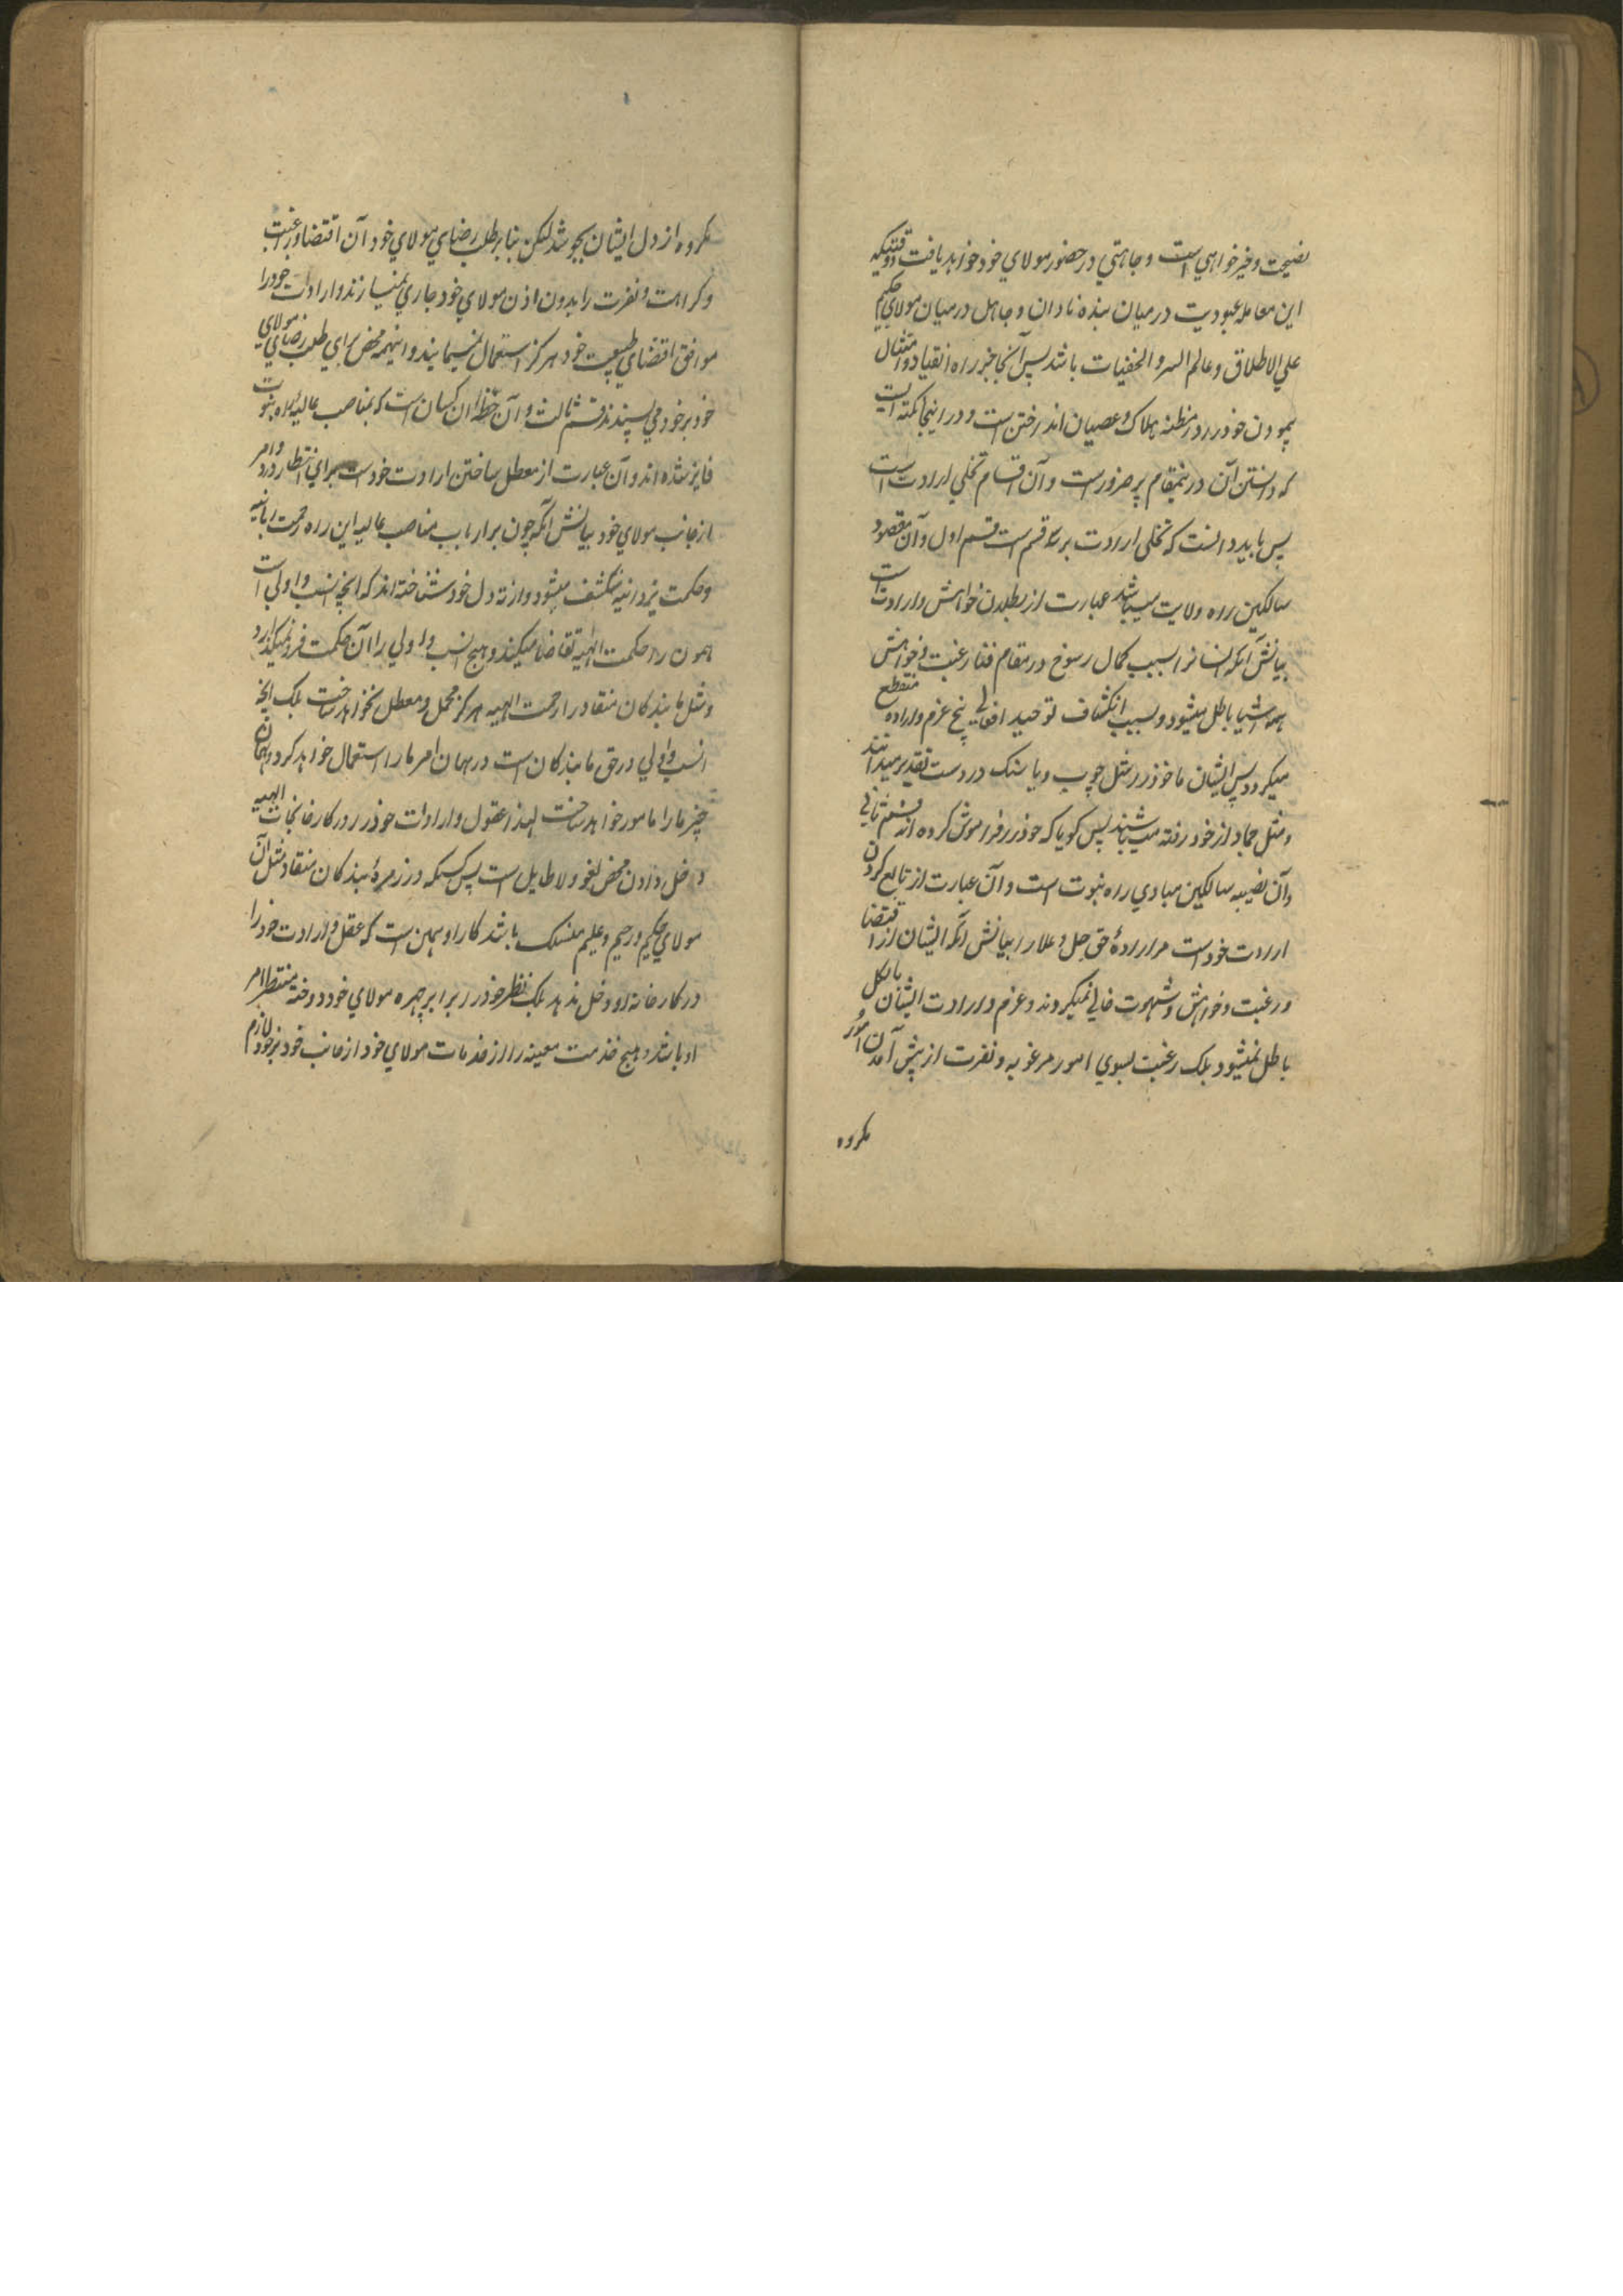 نصیحت و خیرخواهی است و جاهتی در حضور مولای خود خواهد یافت و وقتیکه
این معامله عبودیت در میان بنده نادان و جاهل و در میان مولای حکیم
علی الاطلاق و عالم السر و الخفیات باشد پس آنجا جز راه انقیاد و امتثال
پیمودن خود را در مظنه هلاک و عصیان انداختن است و در اینجا نکته ایست
که دانستن آن درینمقام پر ضرور است و آن اقسام تخلی ارادت است
پس باید دانست که تخلی ارادت بر سه قسم است قسم اول و آن مقصود
سالکین راه ولایت میباشد عبارت از بطلان خواهش و ارادت است
بیانش آنکه ایشانرا بسبب کمال رسوخ در مقام فنا رغبت و خواهش
همه اشیا باطل میشود و بسبب انکشاف توحید افعالی بیخ عزم و اراده منقطع
میگردد پس ایشان ما خود را مثل چوب و یا سنگ در دست تقدیر میدانند
و مثل جماد از خود رفته میباشند پس گویا که خود را فراموش کرده اند قسم ثانی
و آن نصیبه سالکین مبادی راه نبوت است و آن عبارت از تابع کردن
ارادت خود است مر ارادهٔ حق جل و علا را بیانش آنکه ایشان از اقتضا
و رغبت و خواهش و شهوت خالی نمیگردند و عزم و ارادت ایشان بالکل
باطل نمیشود بلکه رغبت بسوی امور مرغوبه و نفرت از پیش آمدن امور
مکروه
مکروه از دل ایشان بجوشد لیکن بنابر طلب رضای مولای خود آن اقتضا و رغبت
و کراهت و نفرت را بدون اذن مولای خود جاری نمیسازند و ارادات خود را
موافق اقتضای طبیعت خود هرگز استعمال نمینمایند و اینهمه محض برای طلب رضای مولای
خود بر خود می پسندند قسم ثالث و آن حظ آن کسان است که بمناصب عالیه راه نبوت
فایز شده اند و آن عبارت از معطل ساختن ارادت خود است برای انتظار ورود امر
از جانب مولای خود بیانش آنکه چون بر ارباب مناصب عالیه این راه رحمت ربانیه
و حکمت یزدانیه منکشف میشود و از ته دل خود شناخته اند که آنچه انسب و اولی است
همون را حکمت الهیه تقاضا میکند و هیچ انسب و اولی را آن حکمت فرو نمیگذارد
و مثل ما بندگان منقاد را رحمت الهیه هرگز مهمل و معطل نخواهد ساخت بلکه آنچه
انسب و اولی در حق ما بندگان است در همان امر ما را استعمال خواهد کرد و بهمان
چیز ما را مامور خواهد ساخت لهذا عقول و ارادات خود را در کارخانجات الهیه
دخل دادن محض لغو و لاطایل است پس کسیکه در زمرهٔ بندگان منقاد مثل آن
مولای حکیم و رحیم و علیم منسلک باشد کار او همین است که عقل و ارادت خود را
در کارخانه او دخل ندهد بلکه نظر خود را برابر چهره مولای خود دوخته منتظر امر
او باشد و هیچ خدمت معینه را از خدمات مولای خود از جانب خود بر خود لازم